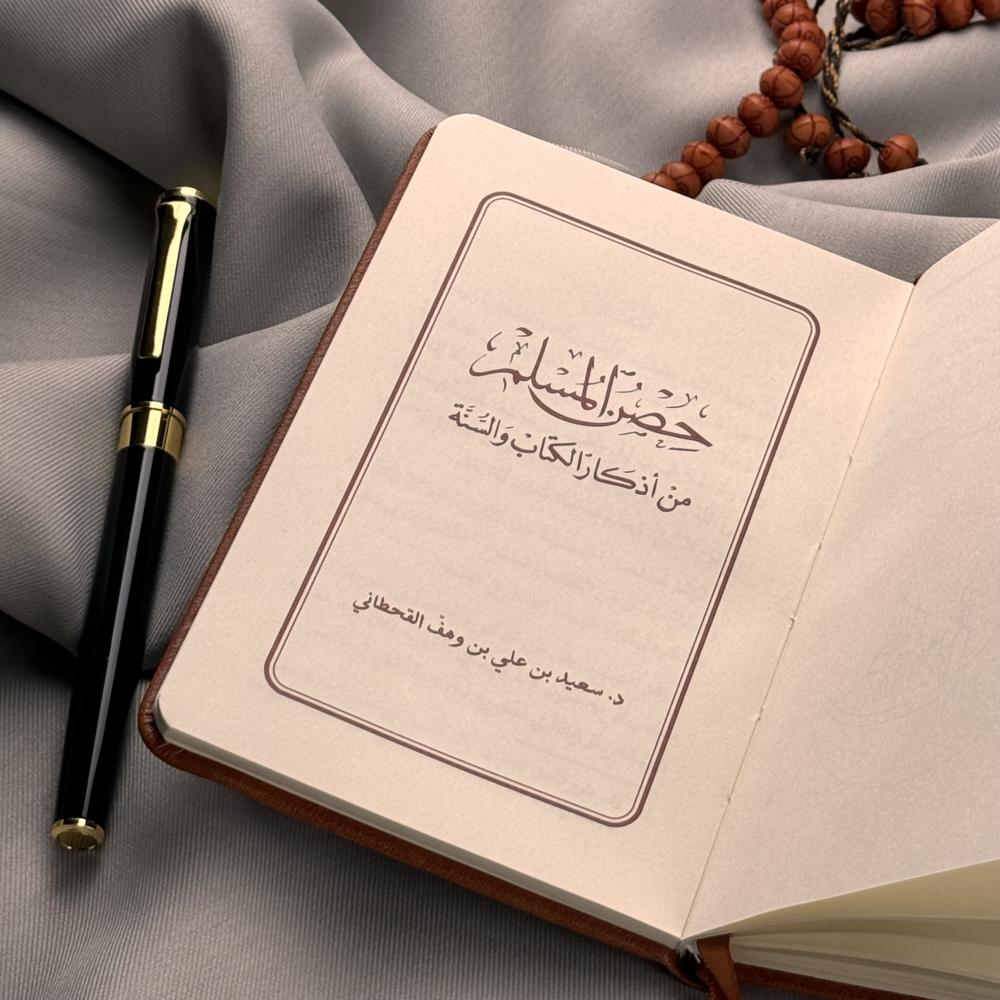 حِصْنُ الْمُسْلِمْ
مِنْ أَذكَارِ الكِتَابْ وَالسُّنَّة
د. سعيد بن علي بن وهف القحطاني